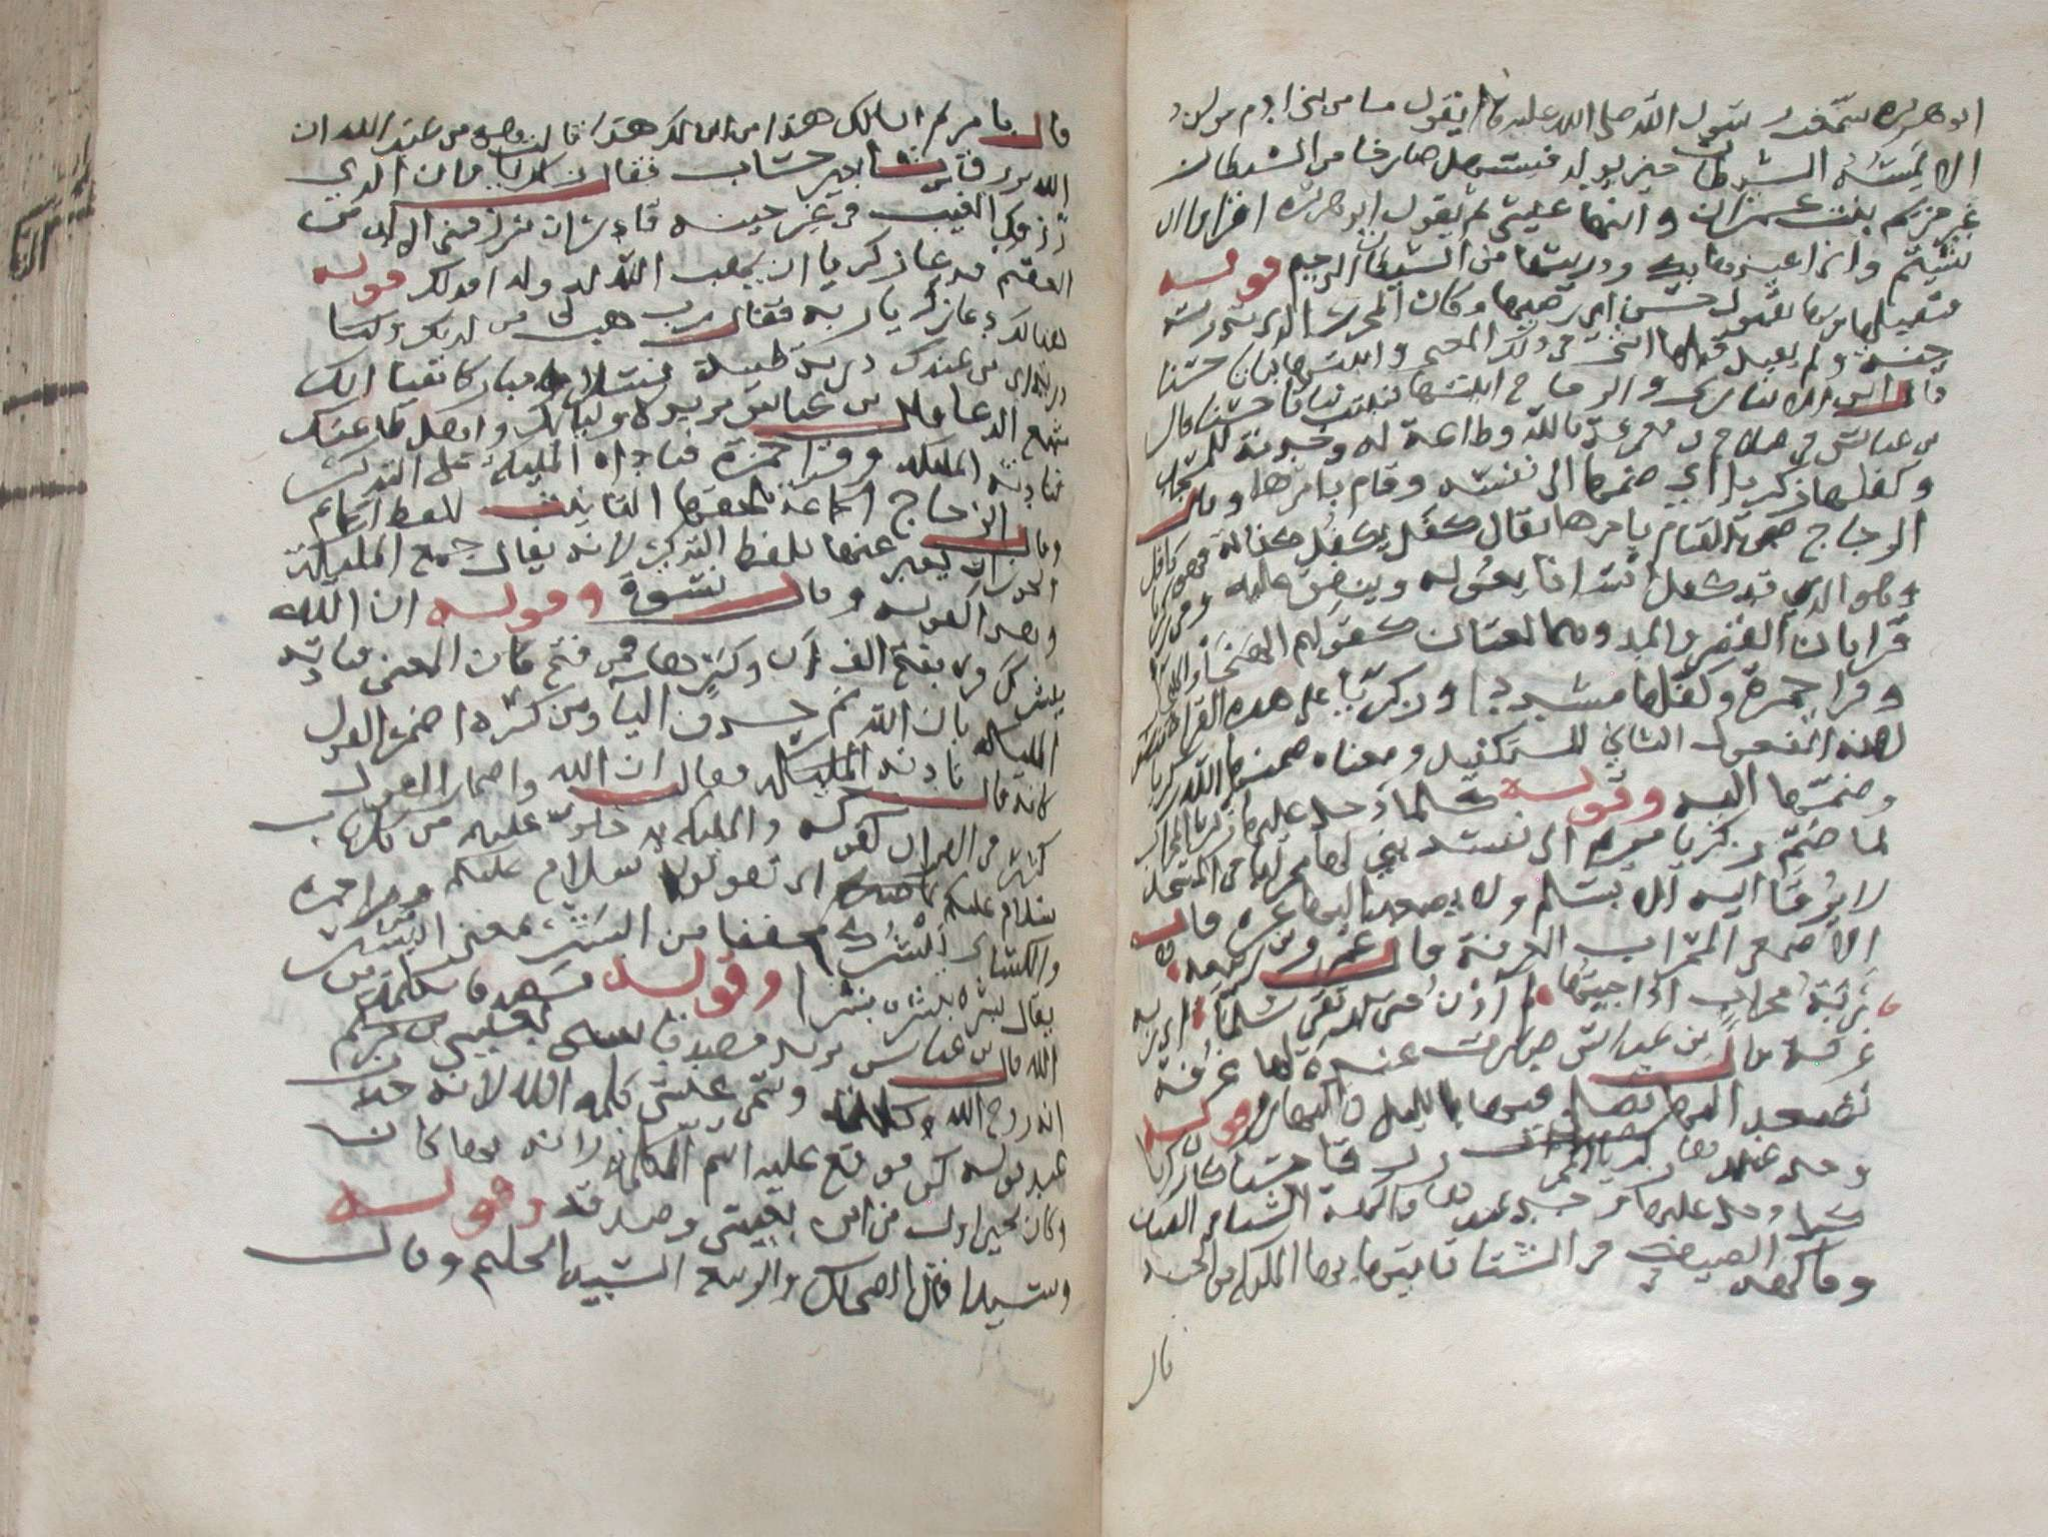 ابو هريره سمعت رسول الله صلى الله عليه يقول ما من بني ادم مولود
الا يمسه الشيطان حين يولد فيستهل صارخا من الشيطان
غير مريم بنت عمران وابنها عيسى ثم يقول ابو هريره اقراوا ان
شيتم واني اعيذها بك وذريتها من الشيطان الرجيم قوله
فتقبلها ربها بقبول حسن اي رضيها وكان المحرر الذي نذرته
حنه ولم يقبل قبلها انثى في ذلك المعنى وانبتها نباتا حسنا
قال ابن الانباري والزجاج انبتها فنبتت نباتا حسنا قال
بن عباس في صلاح ومعرفة بالله وطاعة له وخدمة للمسجد
وكفلها زكريا اي ضمها الى نفسه وقام بامرها وقال
الزجاج ضمن القيام بامرها يقال كفل يكفل كفالة فهو كافل
وهو الذي قد كفل انسانا يعوله وينفق عليه وزكريا
قرا بان القصر والمد وهما لغتان كقولهم الهيجا والهيجاء
وقرا حمزة وكفلها مشددا وزكريا على هذه القراه
لانه المفعول الثاني للتكفيل ومعناه ضمنها الله زكريا
وضمها اليه وقوله كلما دخل عليها زكريا المحراب
لما ضم زكريا مريم الى نفسه بنى لها محرابا من المسجد
لا يرقا اليه الا بسلم ولا يصعد اليها غيره قال
الاصمعي المحراب الغرفة قال عمرو بن ربيعه
ربة محراب اذا جيتها لم ادن حتى ارتقى سلما اي ربه
غرفة قال بن عباس صارت عنده لها غرفة
تصعد اليها تصلي فيها بالليل والنهار وقوله
وجد عندها رزقا حسنا كان زكريا
كلما دخل عليها وجد عندها فاكهة الشتا في الصيف
وفاكهه الصيف في الشتا تاتيها بها المليكه من الجنه
قال
قال يا مريم انى لك هذا من اين لك هذا قالت هو من عند الله ان
الله يرزق من يشا بغير حساب فقال زكريا ان الذي
رزقك العيب في غير حينه قادر ان يرزقني الولد من
العقيم فدعا زكريا ان يهب الله له ولدا فذلك قوله
هنالك دعا زكريا ربه فقال رب هب لي من لدنك ولدا
من عندك ذرية طيبة نسلا مباركا تقيا انك
سميع الدعا وقال بن عباس يريد لاوليايك واهل طاعتك
فنادته المليكه وقرا حمزة فناداه المليكه على التذكير
وقال الزجاج الجماعه يلحقها التانيث للفظ الجماعه
ويجوز ان يعبر عنها بلفظ التذكير لانه يقال جمع المليكة
وهذا كقوله وقال نسوة وقوله ان الله
يبشرك قرئ بفتح الف ان وكسرها فمن فتح كان المعنى فنادته
المليكه بان الله ثم حذف البا ومن كسره اضمر القول
لانه قال نادته المليكه فقالت ان الله واضمار القول
كثير في القران كقوله والمليكه يدخلون عليهم من كل باب
سلام عليكم اي يقولون سلام عليكم وقرا حمزه
والكسائي يبشرك مخففا من البشر بمعنى التبشير
يقال بشره يبشره بشرا وقوله مصدقا بكلمة من
الله قال بن عباس يريد مصدقا بعيسى بن مريم
انه روح الله وكلمته وسمى عيسى كلمه الله لانه حدث
عند قوله كن فوقع عليه اسم الكلمه لانه بها كان
وكان يحيى اول من امن بعيسى وصدقه وقوله
وسيدا قال الضحاك والربيع السيد الحليم وقال